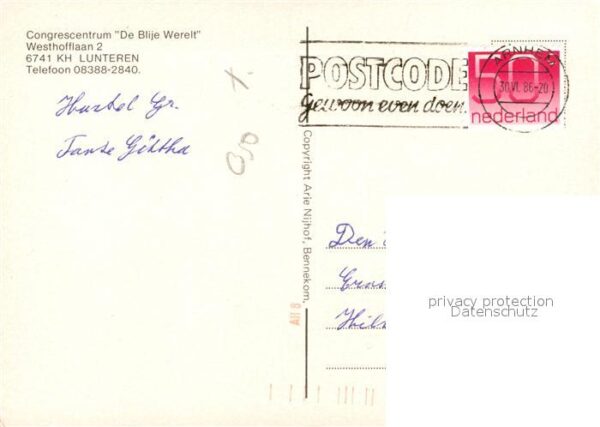 Congrescentrum "De Blije Werelt"
Westhofflaan 2
6741 KH LUNTEREN
Telefoon 08388-2840.
Hartel Gr.
Tante
POSTCODE
gewoon even doen.
ARNHEM
30.VI.86-20
50
nederland
Copyright Arie Nijhof, Bennekom.
Den
privacy protection
Datenschutz